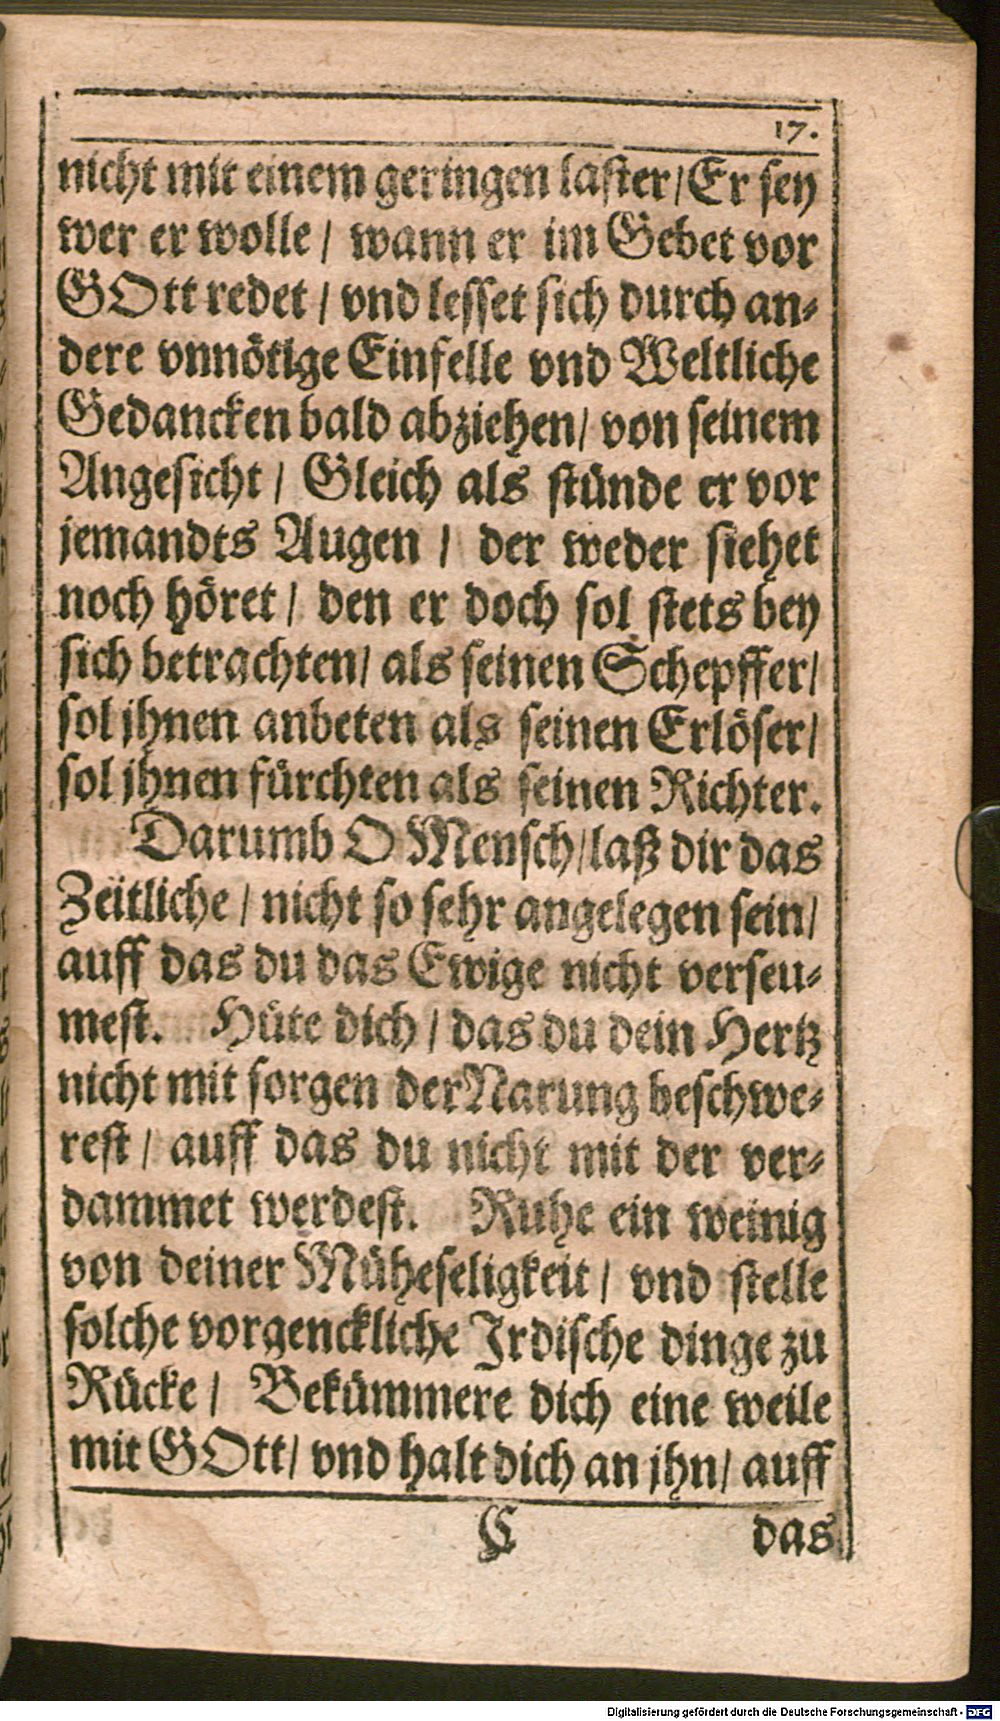 17.
nicht mit einem geringen laster / Er sey
wer er wolle / wann er im Gebet vor
GOtt redet / vnd lesset sich durch an-
dere vnnötige Einfelle vnd Weltliche
Gedancken bald abziehen / von seinem
Angesicht / Gleich als stünde er vor
jemandts Augen / der weder siehet
noch höret / den er doch sol stets bey
sich betrachten / als seinen Schepffer /
sol jhnen anbeten als seinen Erlöser /
sol jhnen fürchten als seinen Richter.
Darumb O Mensch / laß dir das
Zeitliche / nicht so sehr angelegen sein /
auff das du das Ewige nicht verseu-
mest. Hüte dich / das du dein Hertz
nicht mit sorgen der Narung beschwe-
rest / auff das du nicht mit der ver-
dammet werdest. Ruhe ein weinig
von deiner Müheseligkeit / vnd stelle
solche vorgenckliche Irdische dinge zu
Rücke / Bekümmere dich eine weile
mit GOtt / vnd halt dich an jhn / auff
C das
Digitalisierung gefördert durch die Deutsche Forschungsgemeinschaft - DFG